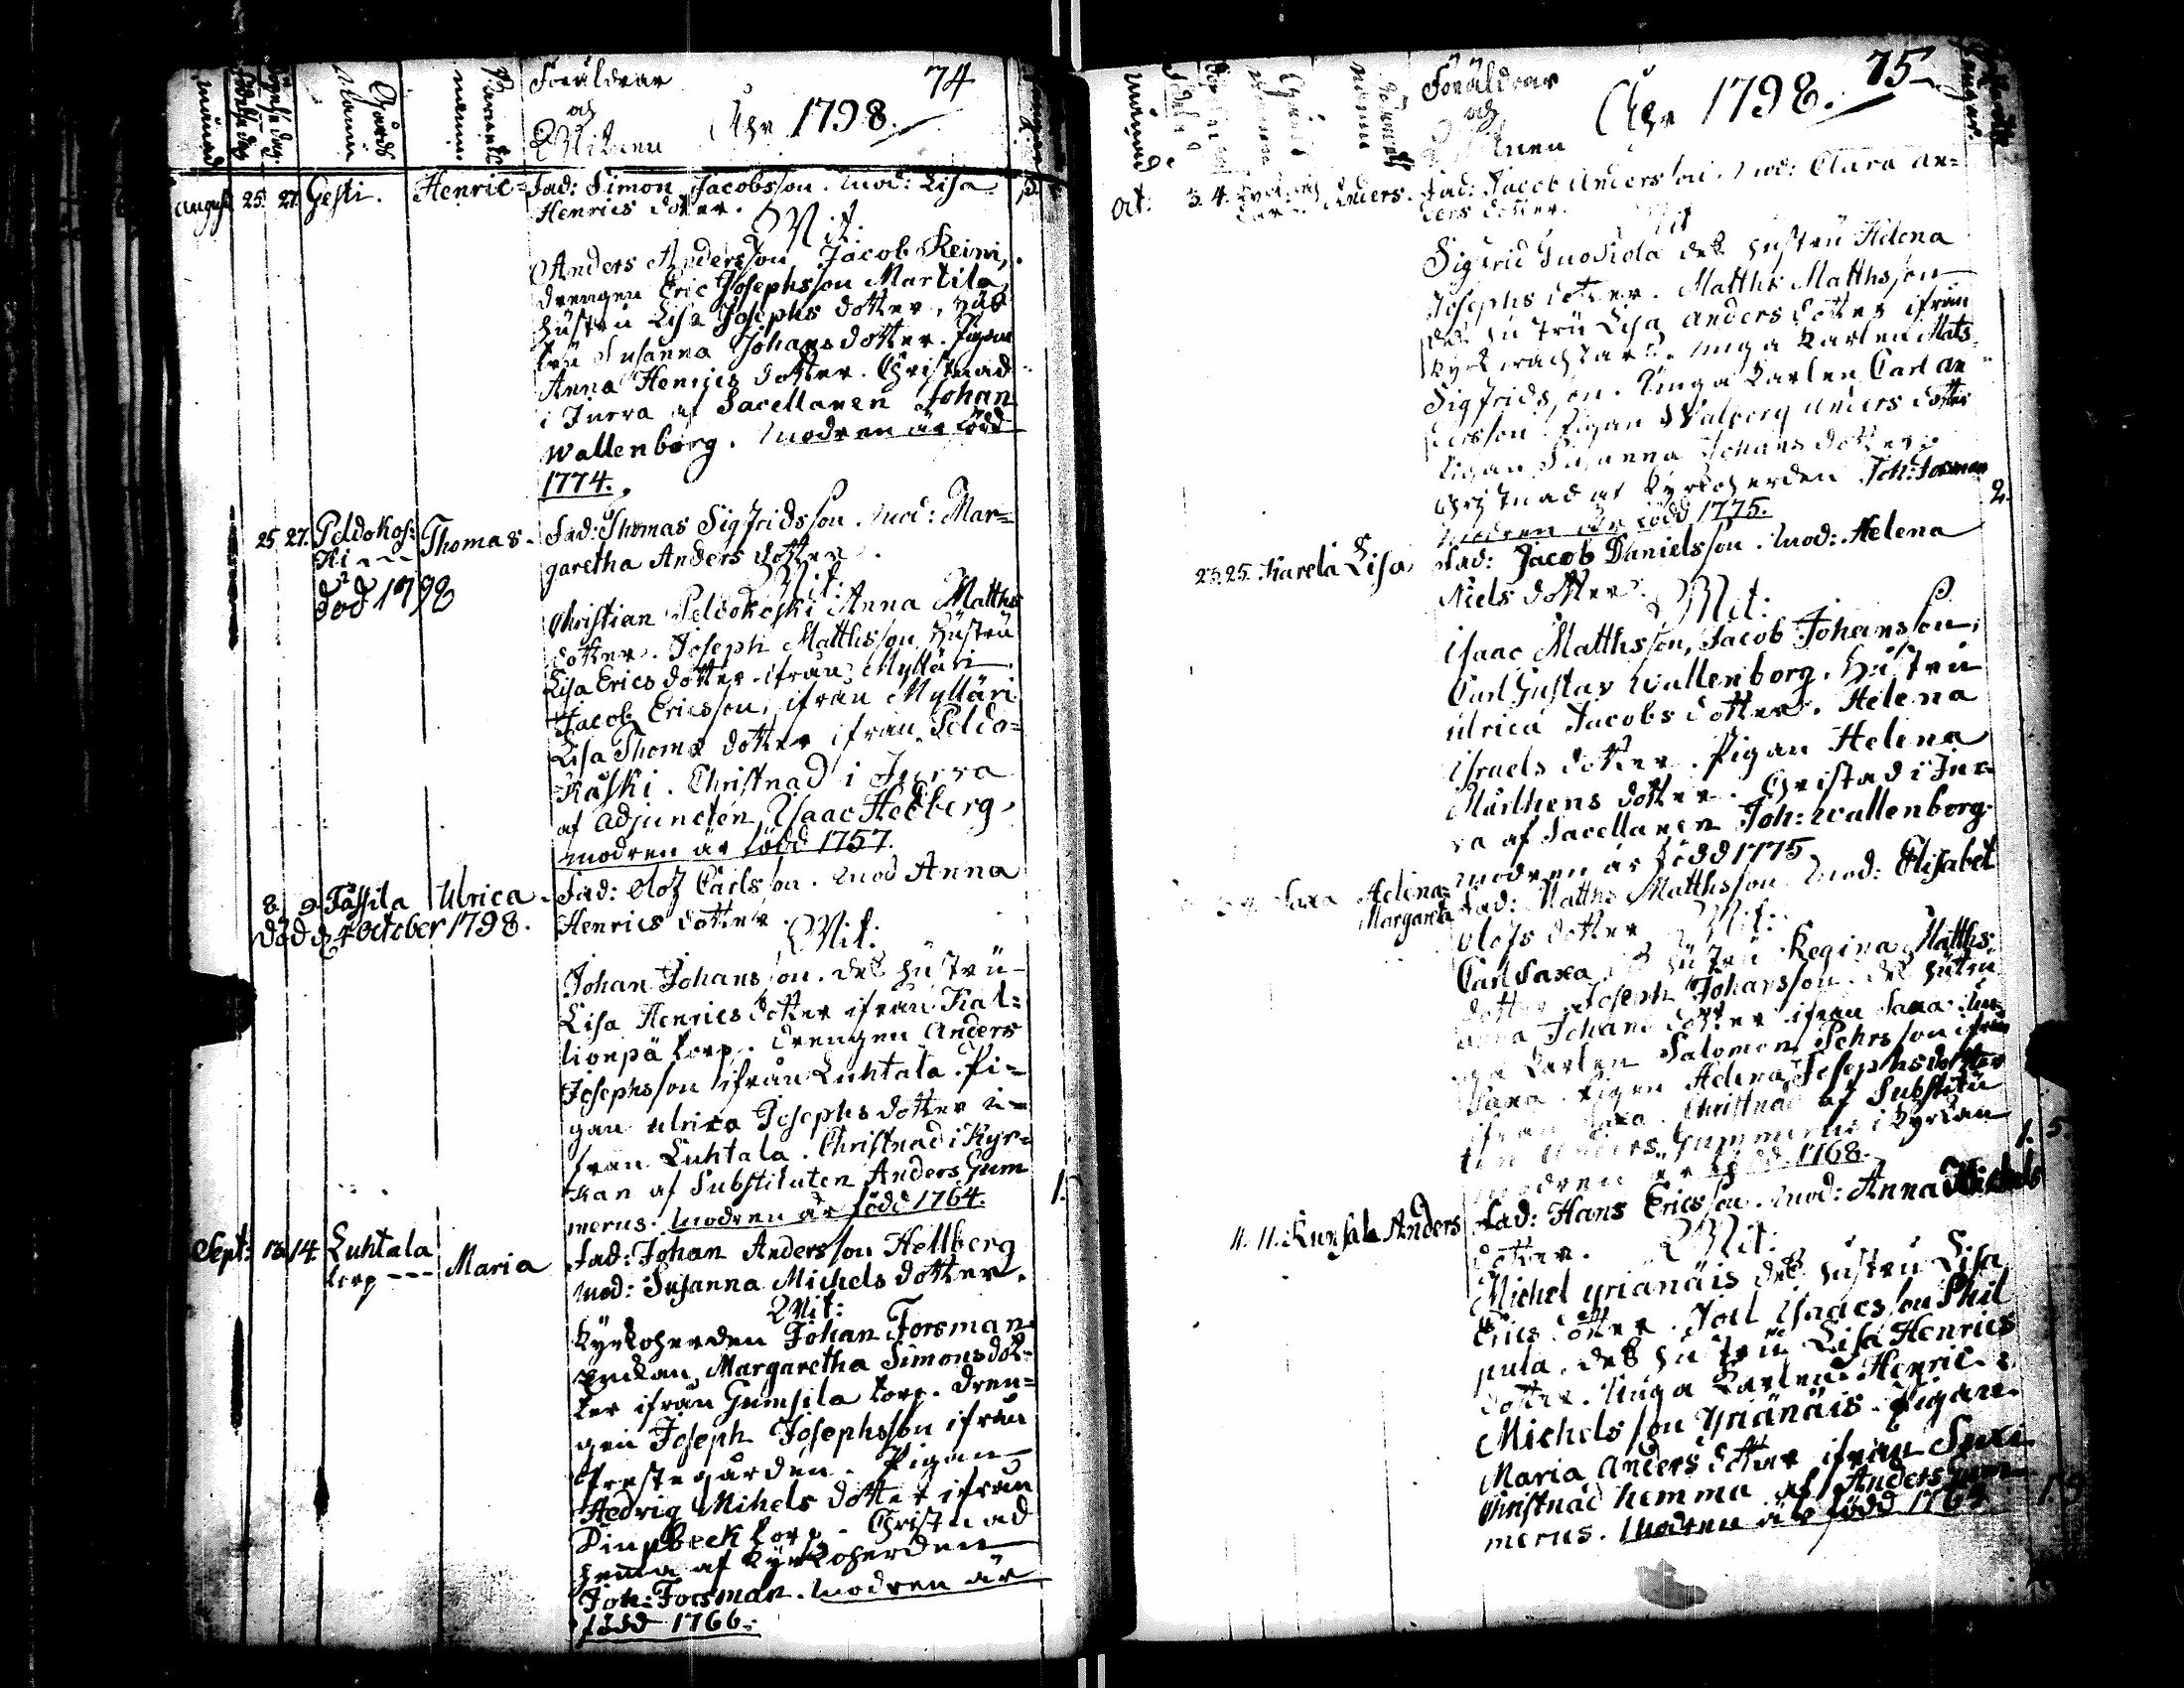 74
Föräldrar
och
Witnen
Åhr 1798.
månad
Gårds
Namn
Barnets
namn
August 25. 27. Gesti. Henric Fad: Simon Jacobsson. Mod: Lisa
Henrics dotter.
Wit:
Anders Andersson, Jacob Reini,
drengen Eric Josephsson Martila
hustru Lisa Josephs dotter, hus
tru Susanna Johansdotter. Pigan
Anna Henrics dotter. Christnad
i Jurva af Sacellanen Johan
Wallenborg. Modren är född
1774.
25. 27. Peldokos:
ki --- Thomas. Fad: Thomas Sigfridsson. Mod: Mar=
död 1798
garetha Anders dotter.
Wit:
Christian Peldokoski Anna Matths
dotter. Joseph Matthsson, hustru
Lisa Erics dotter ifrån Mylläri
Jacob Ericsson, ifrån Mylläri
Lisa Thomæ dotter ifrån Peldo=
kåski. Christnad i Jurva
af Adjuncten Isaac Hedberg,
modren är född 1757.
8. 9. Tassila Ulrica. Fad: Olof Carlsson. Mod Anna
död d. 4 October 1798.
Henrics dotter.
Wit:
Johan Johansson. des hustru
Lisa Henrics dotter ifrån Kal=
lionpä torp. drengen Anders
Josephsson ifrån Luhtala. Pi=
gan Ulrica Josephs dotter i=
från Luhtala. Christnad i Kyr=
kan af Substituten Anders Gum
merus. Modren är född 1764.
1.
Sept: 13. 14. Luhtala
torp --- Maria Fad: Johan Andersson Hellberg
Mod: Susanna Michels dotter.
Wit:
Kyrkoherden Johan Forsman
Enkan Margaretha Simonsdot=
ter ifrån Gumsila torp. Dren=
gen Joseph Josephsson ifrån
Prestegården. Pigan
Hedvig Mihels dotter ifrån
torp. Christnad
hemma af Kyrkoherden
Joh: Forsman. Modren är
född 1766.
75
Föräldrar
och
Witnen
Åhr 1798.
Oct: 3. 4. Anders. Fad: Jacob Andersson. Mod: Clara An=
ders dotter.
Wit
Sigfrid des hustru Helena
Josephs dotter. Matths Matthsson
des hustru Lisa Anders dotter ifrån
unga Karlen Mats
Sigfridsson. Unga Karlen Carl An
dersson. Pigan Walborg Anders dotter
Pigan Susanna Johans dotter.
Christnad af Kyrkoherden Joh: Forsman
Modren är född 1775.
2.
23. 25. Karela Lisa. Fad: Jacob Danielsson. Mod: Helena
Niels dotter.
Wit:
Isaac Matthsson, Jacob Johansson,
Carl Gustav Wallenborg. Hustru
Ulrica Jacobs dotter. Helena
Israels dotter. Pigan Helena
dotter. Christad i Jur=
va af Sacellanen Joh: Wallenborg.
modren är född 1775
Saxa Helena
Margareta Fad: Matths Matthsson Mod: Elisabet
Olofs dotter Wit:
Carl Saxa, des hustru Regina Matths
dotter Joseph Johansson. des hustru
Anna Johans dotter ifrån Saxa. Un=
ga Karlen Salomon Pehrsson ifrån
Saxa. Pigan Helena Josephs dotter
ifrån Saxa. Christnad af Substitu
ten Anders Gummerus i Kyrkan
modren är född 1768.
1. 5.
11. 11. Anders Fad: Hans Ericsson. Mod: Anna Michels
dotter. Wit:
Michel Yrianäis des hustru Lisa
Erics dotter. Joel Isaacsson Phil
pula, des hustru Lisa Henrics
dotter. Unga Karlen Henric
Michelsson Yrianäis. Pigan
Maria Anders dotter ifrån
Christnad hemma af Anders Gum
merus. Modren är född 1764